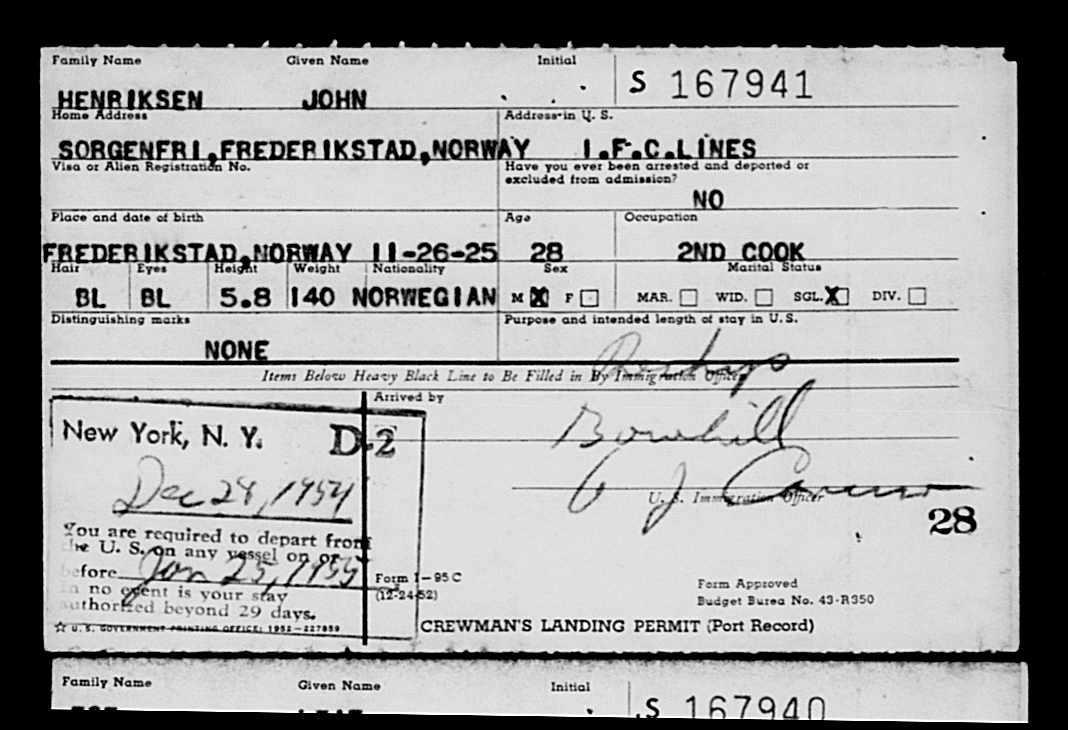 Family Name Given Name Initial S 167941
HENRIKSEN JOHN
Home Address Address in U. S.
SORGENFRI, FREDERIKSTAD, NORWAY I.F.C.LINES
Visa or Alien Registration No. Have you ever been arrested and deported or
excluded from admission?
NO
Place and date of birth Age Occupation
FREDERIKSTAD,NORWAY 11-26-25 28 2ND COOK
Hair Eyes Height Weight Nationality Sex Marital Status
BL BL 5.8 140 NORWEGIAN M X F MAR. WID. SGL. X DIV.
Distinguishing marks Purpose and intended length of stay in U.S.
NONE
Items Below Heavy Black Line to Be Filled in By Immigration Officer
Arrived by
New York, N. Y. D-2
Bowhill
Dec 28, 1954
U. S. Immigration Officer
28
You are required to depart from
the U. S. on any vessel on or
before Jan 25, 1955
in no event is your stay
authorized beyond 29 days.
☆ U. S. GOVERNMENT PRINTING OFFICE: 1952—227859
Form I-95C
(12-24-52)
Form Approved
Budget Burea No. 43-R350
CREWMAN'S LANDING PERMIT (Port Record)
Family Name Given Name Initial S 167940